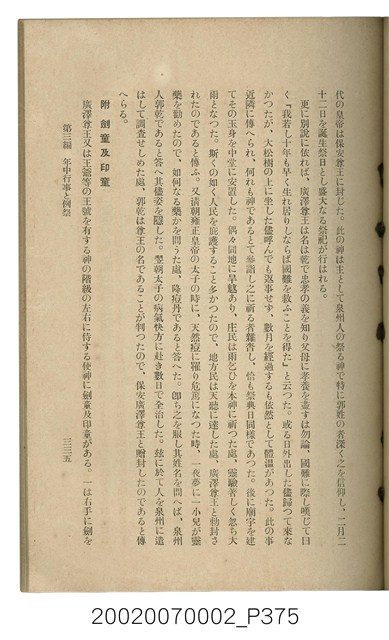 代の皇帝は保安尊王に封じた。此の神は主として泉州人の祭る神で特に郭姓の者深く之を信仰し、二月二
十二日を誕生祭日とし盛大なる祭祀が行はれる。
更に別說に依れば、廣澤尊王は名は乾で忠孝の義を知り父母に孝養を盡すは勿論、國難に際し嘆じて曰
く「我若し十年も早く生れ居りしならば國難を救ふことを得た」と云つた。或る日外出した儘歸つて來な
かつたが、大松樹の上に坐した儘呼んでも返事せず、數月を經過するも依然として體溫があつた。此の事
近隣に傳へられ、何れも神であるとて參詣し之に祈る者雜沓し、恰も祭典日同樣であつた。後に廟宇を建
てその玉身を中堂に安置した。偶々同地に旱魃あり、庄民は雨乞ひを本神に祈つた處、靈驗著しく忽ち大
雨となつた。斯くの如く人民を庇護すること多かつたので、地方民は天聽に達した處、廣澤尊王と勅封さ
れたのであると傳ふ。又淸朝雍正皇帝の太子の時に、天然痘に罹り危篤になつた時、一夜夢に一小兒が靈
藥を勸めたので、如何なる藥かを問うた處、降痘丹であると答へた。卽ち之を服し其姓名を問へば、泉州
人郭乾であると答へ其儘姿を隱した。翌朝太子の病氣快方に赴き數日で全治した。玆に於て人を泉州に遣
はして調査せしめた處、郭乾は尊王の名であることが判つたので、保安廣澤尊王と贈封したのであると傳
へらる。
附 劍童及印童
廣澤尊王又は王爺等の王號を有する神の階級の左右に侍する使神に劍童及印童がある。一は右手に劍を
第三編 年中行事と例祭
三三五
20020070002_P375